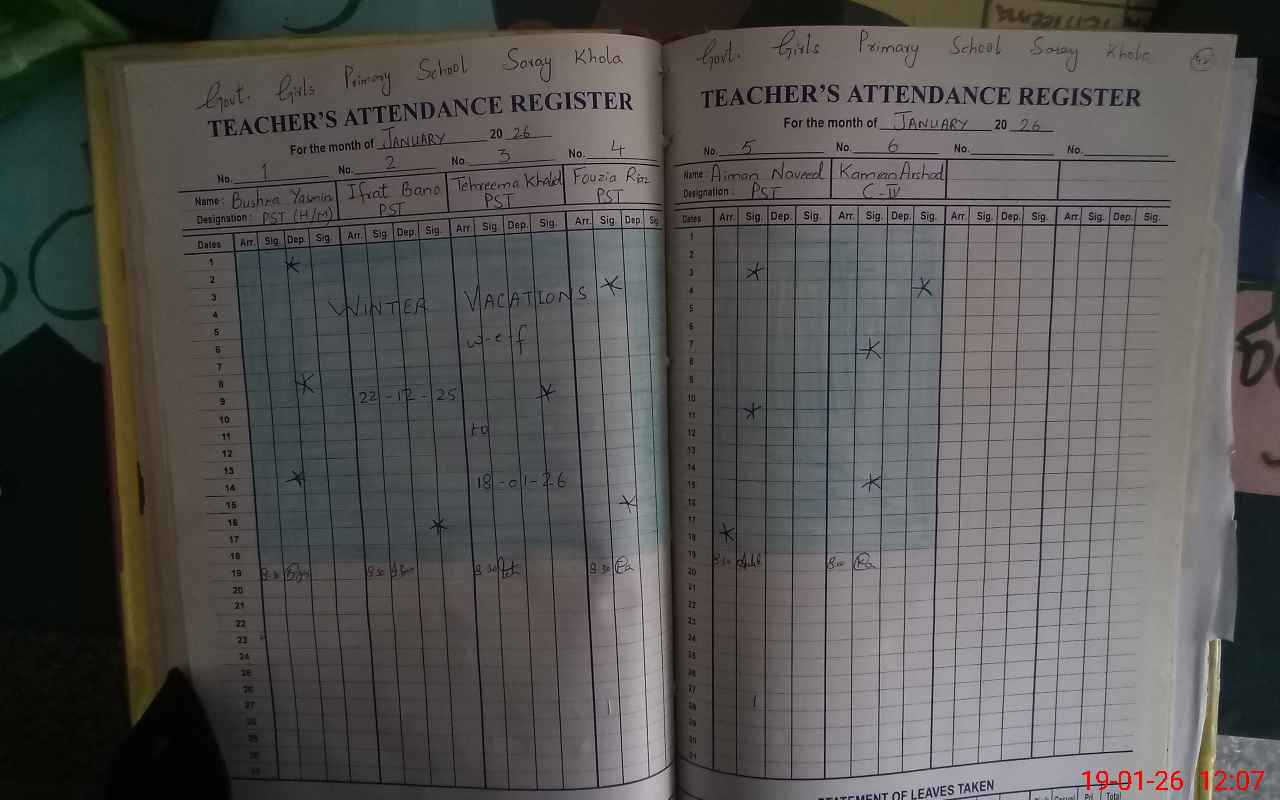 Govt. Girls Primary School Saray Khola
TEACHER'S ATTENDANCE REGISTER
For the month of JANUARY 20 26
No. 1 No. 2 No. 3 No. 4
Name: Bushra Yasmin Ifrat Bano Tehreema Khalid Fouzia Riaz
Designation: PST (H/M) PST PST PST
Dates Arr. Sig. Dep. Sig. Arr. Sig. Dep. Sig. Arr. Sig. Dep. Sig. Arr. Sig. Dep. Sig.
1
2
3
WINTER VACATIONS
4
5
w-e-f
6
7
8
9
22-12-25
10
11
to
12
13
14
18-01-26
15
16
17
18
19 8:30 8:30 8:30 8:30
20
21
22
23
24
25
26
27
28
29
30
31
Govt. Girls Primary School Saray Khola
TEACHER'S ATTENDANCE REGISTER
For the month of JANUARY 20 26
No. 5 No. 6 No. No.
Name: Aiman Naveed Kamran Arshad
Designation: PST C-IV
Dates Arr. Sig. Dep. Sig. Arr. Sig. Dep. Sig. Arr. Sig. Dep. Sig. Arr. Sig. Dep. Sig.
1
2
3
4
5
6
7
8
9
10
11
12
13
14
15
16
17
18
19 8:30 8:00
20
21
22
23
24
25
26
27
28
29
30
31
STATEMENT OF LEAVES TAKEN
Casual Total
19-01-26 12:07